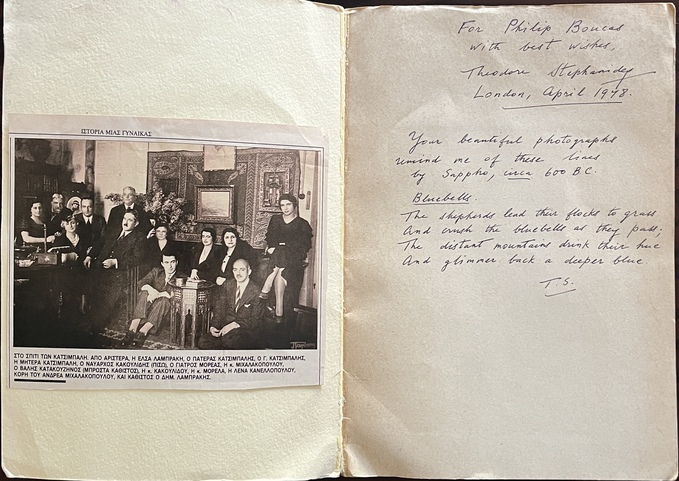 ΙΣΤΟΡΙΑ ΜΙΑΣ ΓΥΝΑΙΚΑΣ
ΣΤΟ ΣΠΙΤΙ ΤΩΝ ΚΑΤΣΙΜΠΑΛΗ. ΑΠΟ ΑΡΙΣΤΕΡΑ, Η ΕΛΣΑ ΛΑΜΠΡΑΚΗ, Ο ΠΑΤΕΡΑΣ ΚΑΤΣΙΜΠΑΛΗΣ, Ο Γ. ΚΑΤΣΙΜΠΑΛΗΣ,
Η ΜΗΤΕΡΑ ΚΑΤΣΙΜΠΑΛΗ, Ο ΝΑΥΑΡΧΟΣ ΚΑΚΟΥΛΙΔΗΣ (ΠΙΣΩ), Ο ΓΙΑΤΡΟΣ ΜΟΡΕΑΣ, Η κ. ΜΙΧΑΛΑΚΟΠΟΥΛΟΥ,
Ο ΒΑΛΗΣ ΚΑΤΑΚΟΥΖΗΝΟΣ (ΜΠΡΟΣΤΑ ΚΑΘΙΣΤΟΣ), Η κ. ΚΑΚΟΥΛΙΔΟΥ, Η κ. ΜΟΡΕΛΑ, Η ΛΕΝΑ ΚΑΝΕΛΛΟΠΟΥΛΟΥ,
ΚΟΡΗ ΤΟΥ ΑΝΔΡΕΑ ΜΙΧΑΛΑΚΟΠΟΥΛΟΥ, ΚΑΙ ΚΑΘΙΣΤΟΣ Ο ΔΗΜ. ΛΑΜΠΡΑΚΗΣ.
For Philip Boucas
with best wishes,
Theodore Stephanides
London, April 1978.
Your beautiful photographs
remind me of these lines
by Sappho, circa 600 B.C.
Bluebells.
The shepherds lead their flocks to grass
And crush the bluebells as they pass;
The distant mountains drink their hue
And glimmer back a deeper blue
T.S.